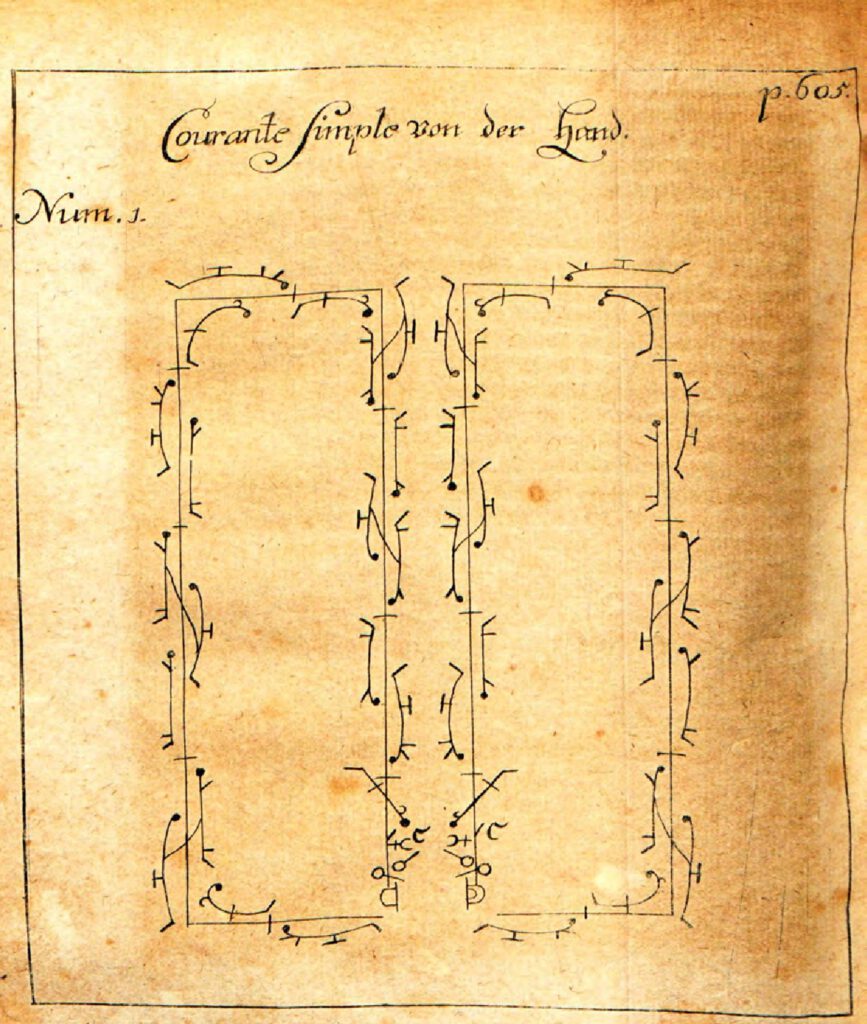 p. 605.
Courante simple von der Hand.
Num. 1.
C C